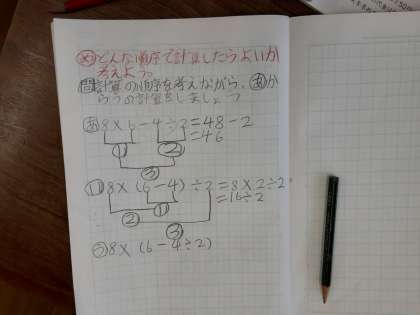 めどんな順序で計算したらよいか
考えよう。
問計算の順序を考えながら、あか
らうの計算をしましょう
あ8×6-4÷2=48-2
=46
① ②
③
い8×(6-4)÷2=8×2÷2
=16÷2
①
②
③
う8×(6-4÷2)